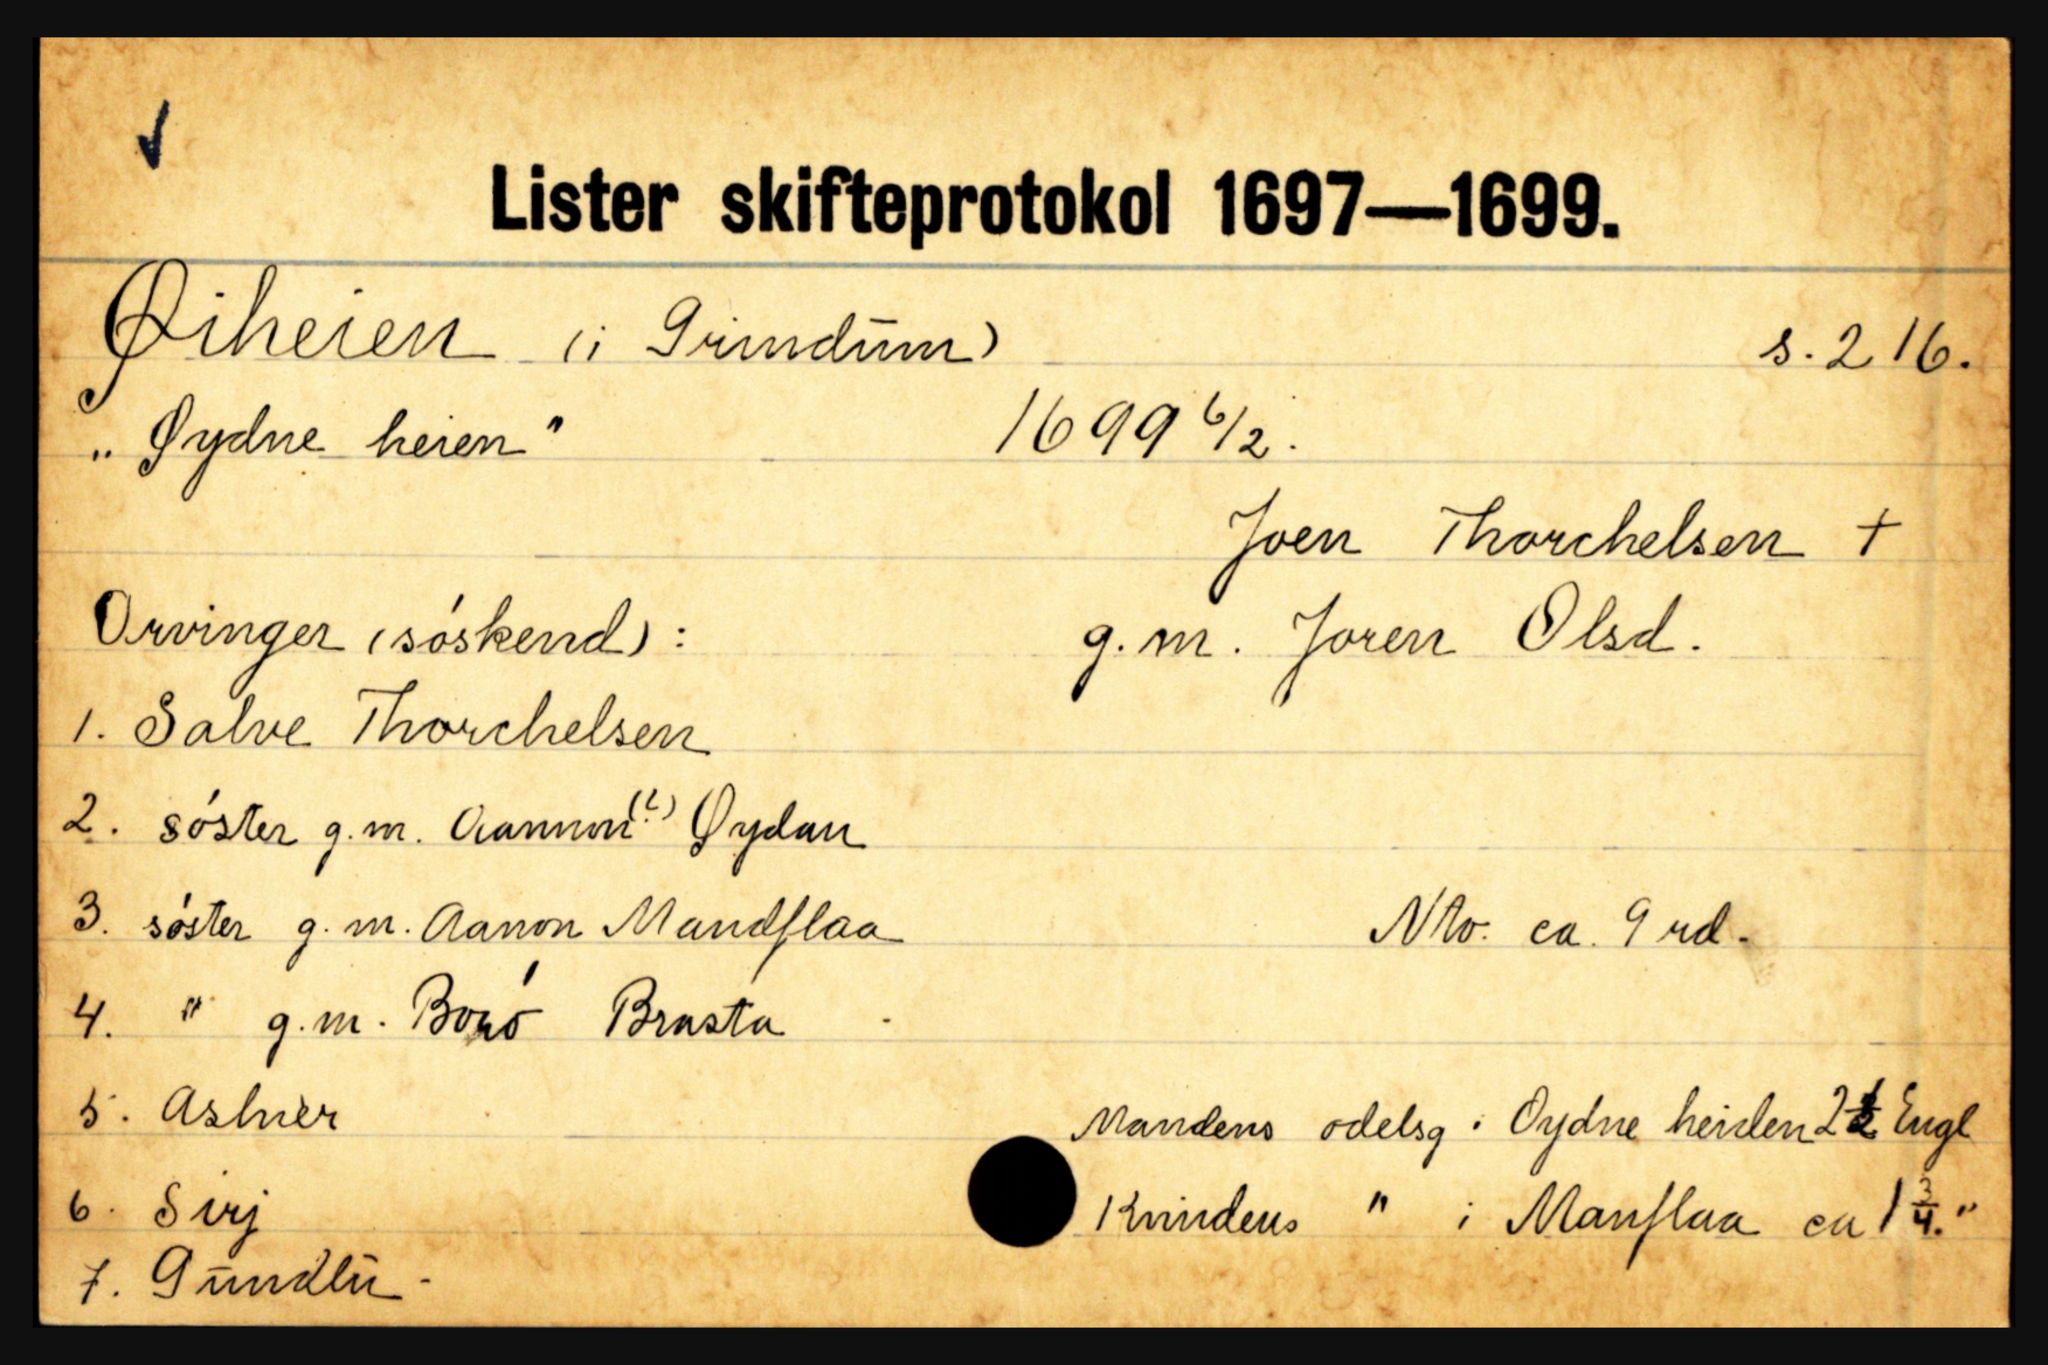 Lister skifteprotokol 1697—1699.
Øiheien (i Grindum) s. 216.
„Øydne heien" 1699 6/2.
Joen Thorchelsen †
Arvinger (söskend): g.m. Joren Olsd.
1. Salve Thorchelsen
2. söster g.m. Aannon (?) Øydan
3. söster g.m. Aanon Mandflaa Nto. ca. 9 rd.
4. " g.m. Boró Brasta
5. Aslner Mandens odelsg i Oydne heiden 2 1/2 Engl
6. Sirj Kvindens " i Manflaa ca 1 3/4. "
7. Gundlu -